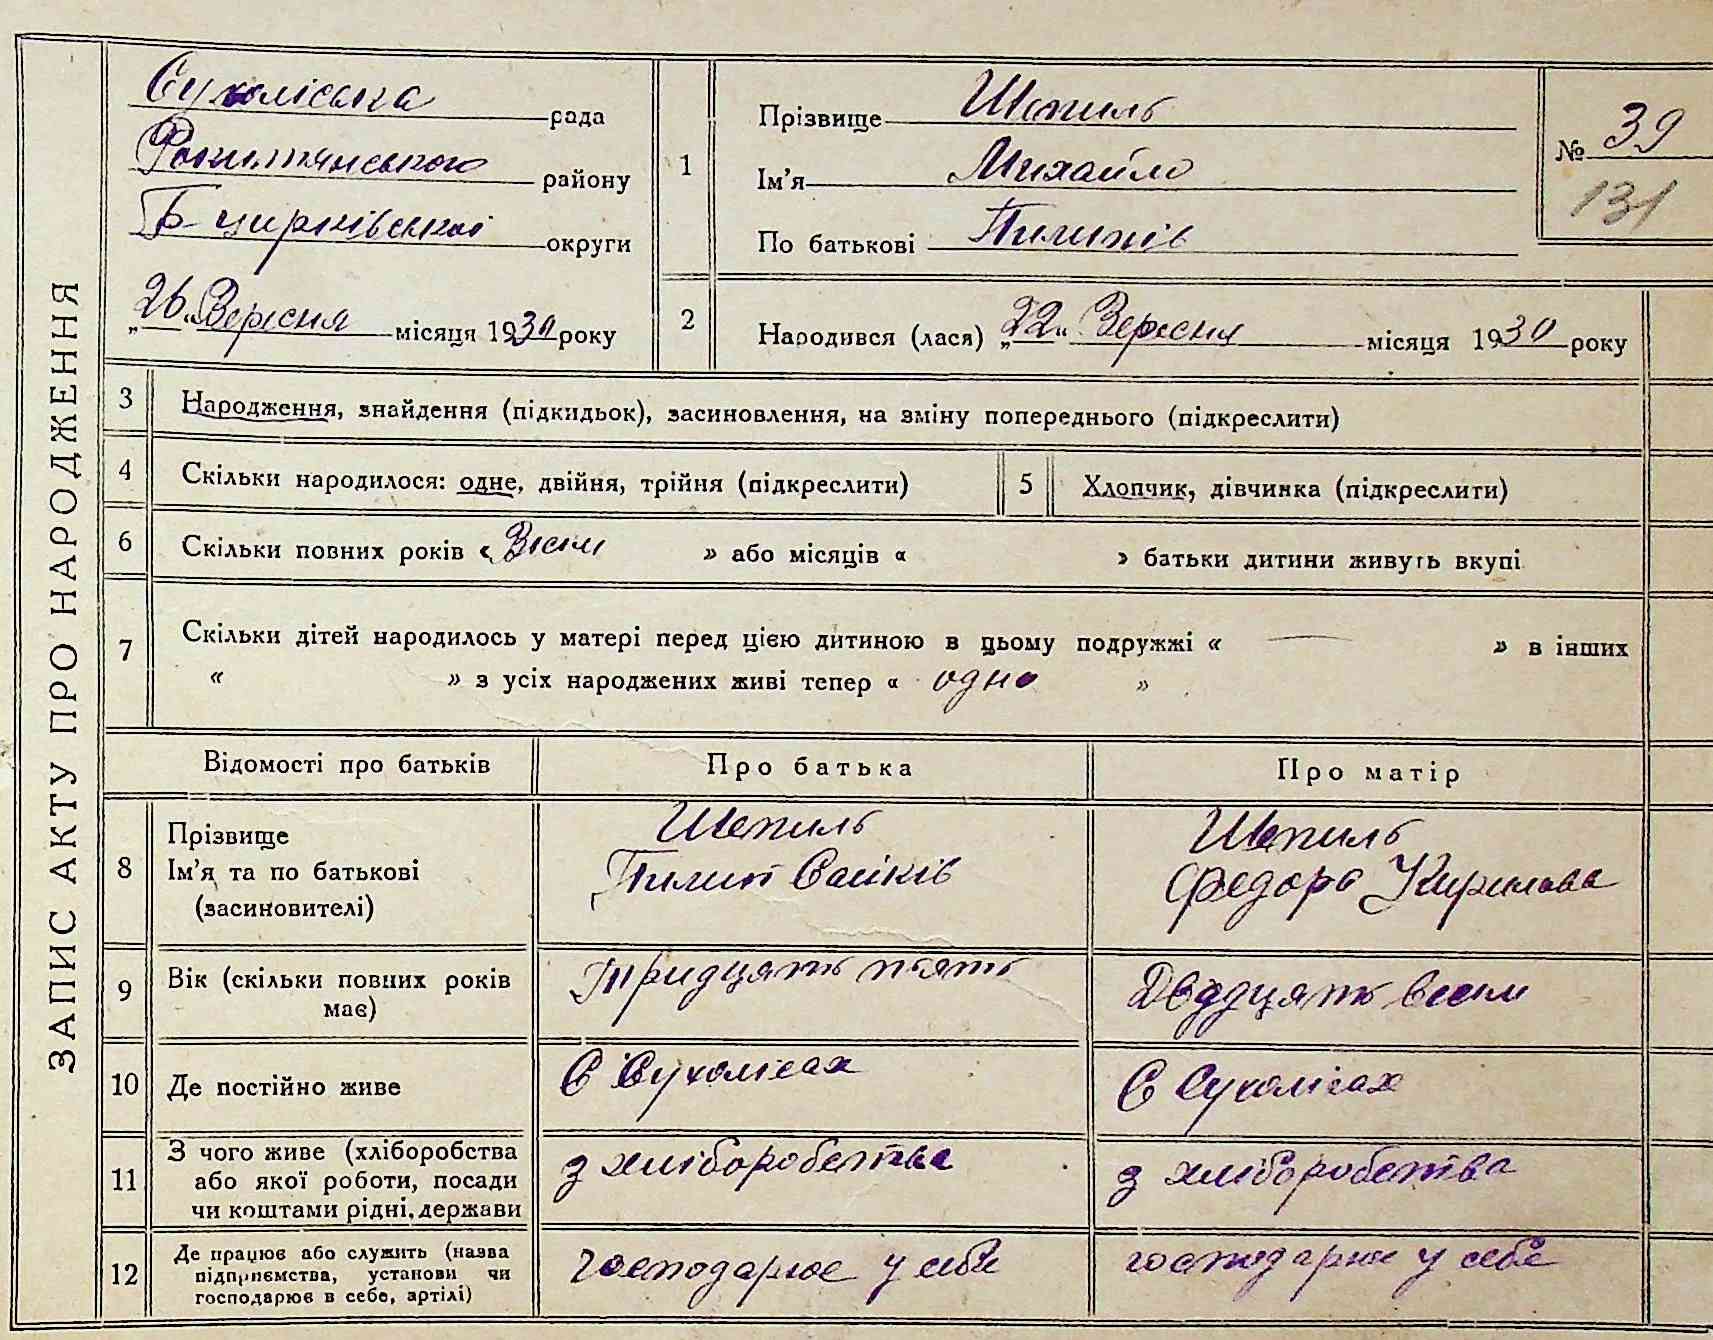 ЗАПИС АКТУ ПРО НАРОДЖЕННЯ
Сухоліська рада
Рокитянського району
Б-церківської округи
„26" Вересня місяця 1930 року
1
Прізвище Шепиль
Ім'я Михайло
По батькові Пилипів
№ 39
131
2
Народився (лася) „22" Вересня місяця 1930 року
3 Народження, знайдення (підкидьок), засиновлення, на зміну попереднього (підкреслити)
4 Скільки народилося: одне, двійня, трійня (підкреслити)
5 Хлопчик, дівчинка (підкреслити)
6 Скільки повних років « Вісім » або місяців « » батьки дитини живуть вкупі
7 Скільки дітей народилось у матері перед цією дитиною в цьому подружжі « — » в інших
« » з усіх народжених живі тепер « одно »
Відомості про батьків
Про батька
Про матір
8
Прізвище
Ім'я та по батькові
(засиновителі)
Шепиль
Пилип
Шепиль
Федора Кирилова
9
Вік (скільки повних років
має)
Тридцять пять
Двадцять вісім
10 Де постійно живе
в Сухолісах
в Сухолісах
11
З чого живе (хліборобства
або якої роботи, посади
чи коштами рідні, держави
з хліборобства
з хліборобства
12
Де працює або служить (назва
підприємства, установи чи
господарює в себе, артілі)
господарює у себе
господарює у себе